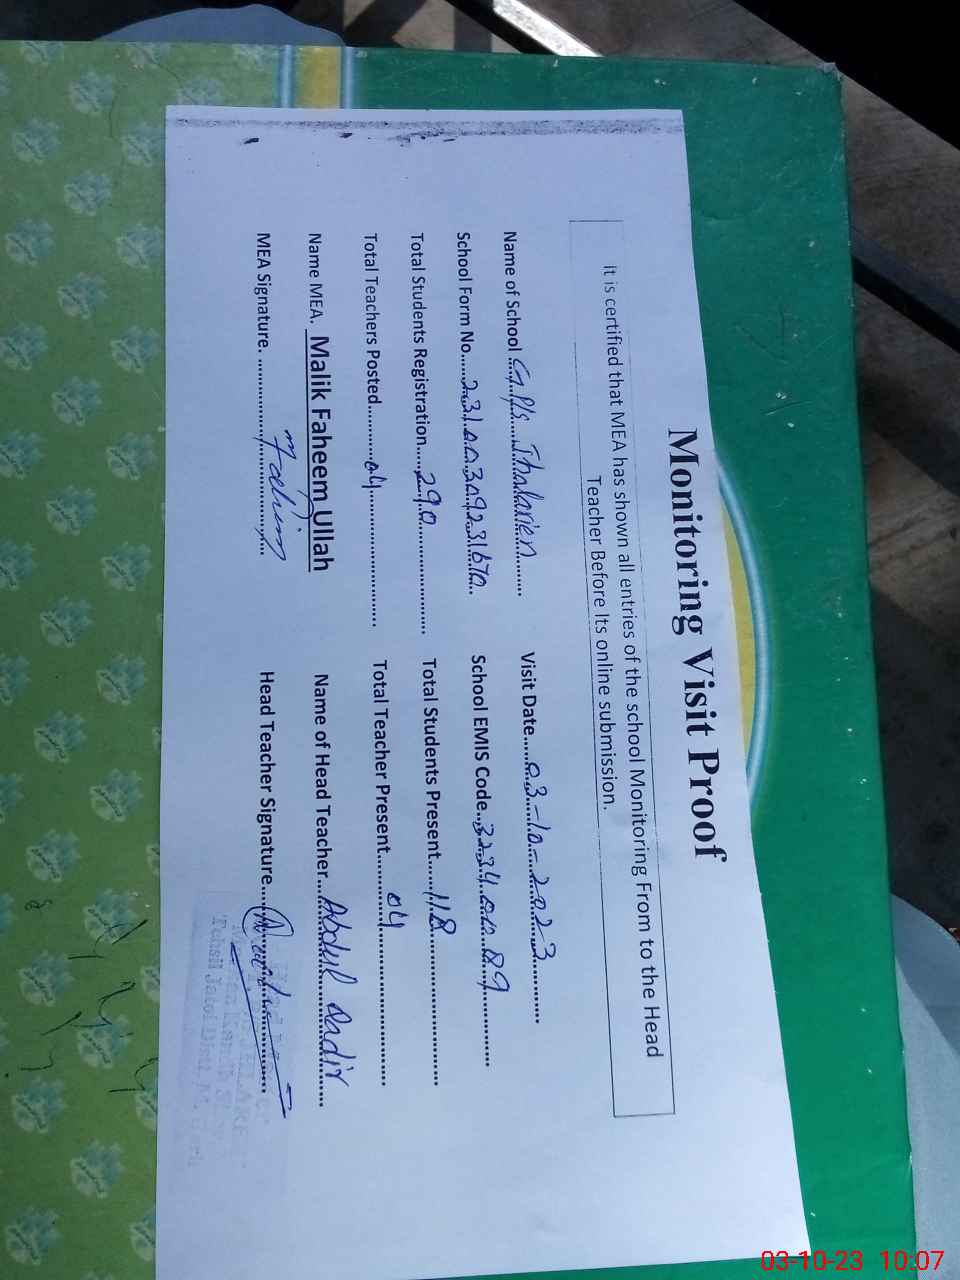 Monitoring Visit Proof
it is certified that MEA has shown all entries of the school Monitoring From to the Head
Teacher Before Its online submission.
Name of School G/P/S Thalarien Visit Date 03-10-2023
School Form No. School EMIS Code
Total Students Registration 290 Total Students Present 118
Total Teachers Posted 04 Total Teacher Present 04
Name MEA. Malik Faheem Ullah Name of Head Teacher Abdul Qadir
MEA Signature. Fahim Head Teacher Signature
Tehsil Jatoi Distt. M.
03-10-23 10:07